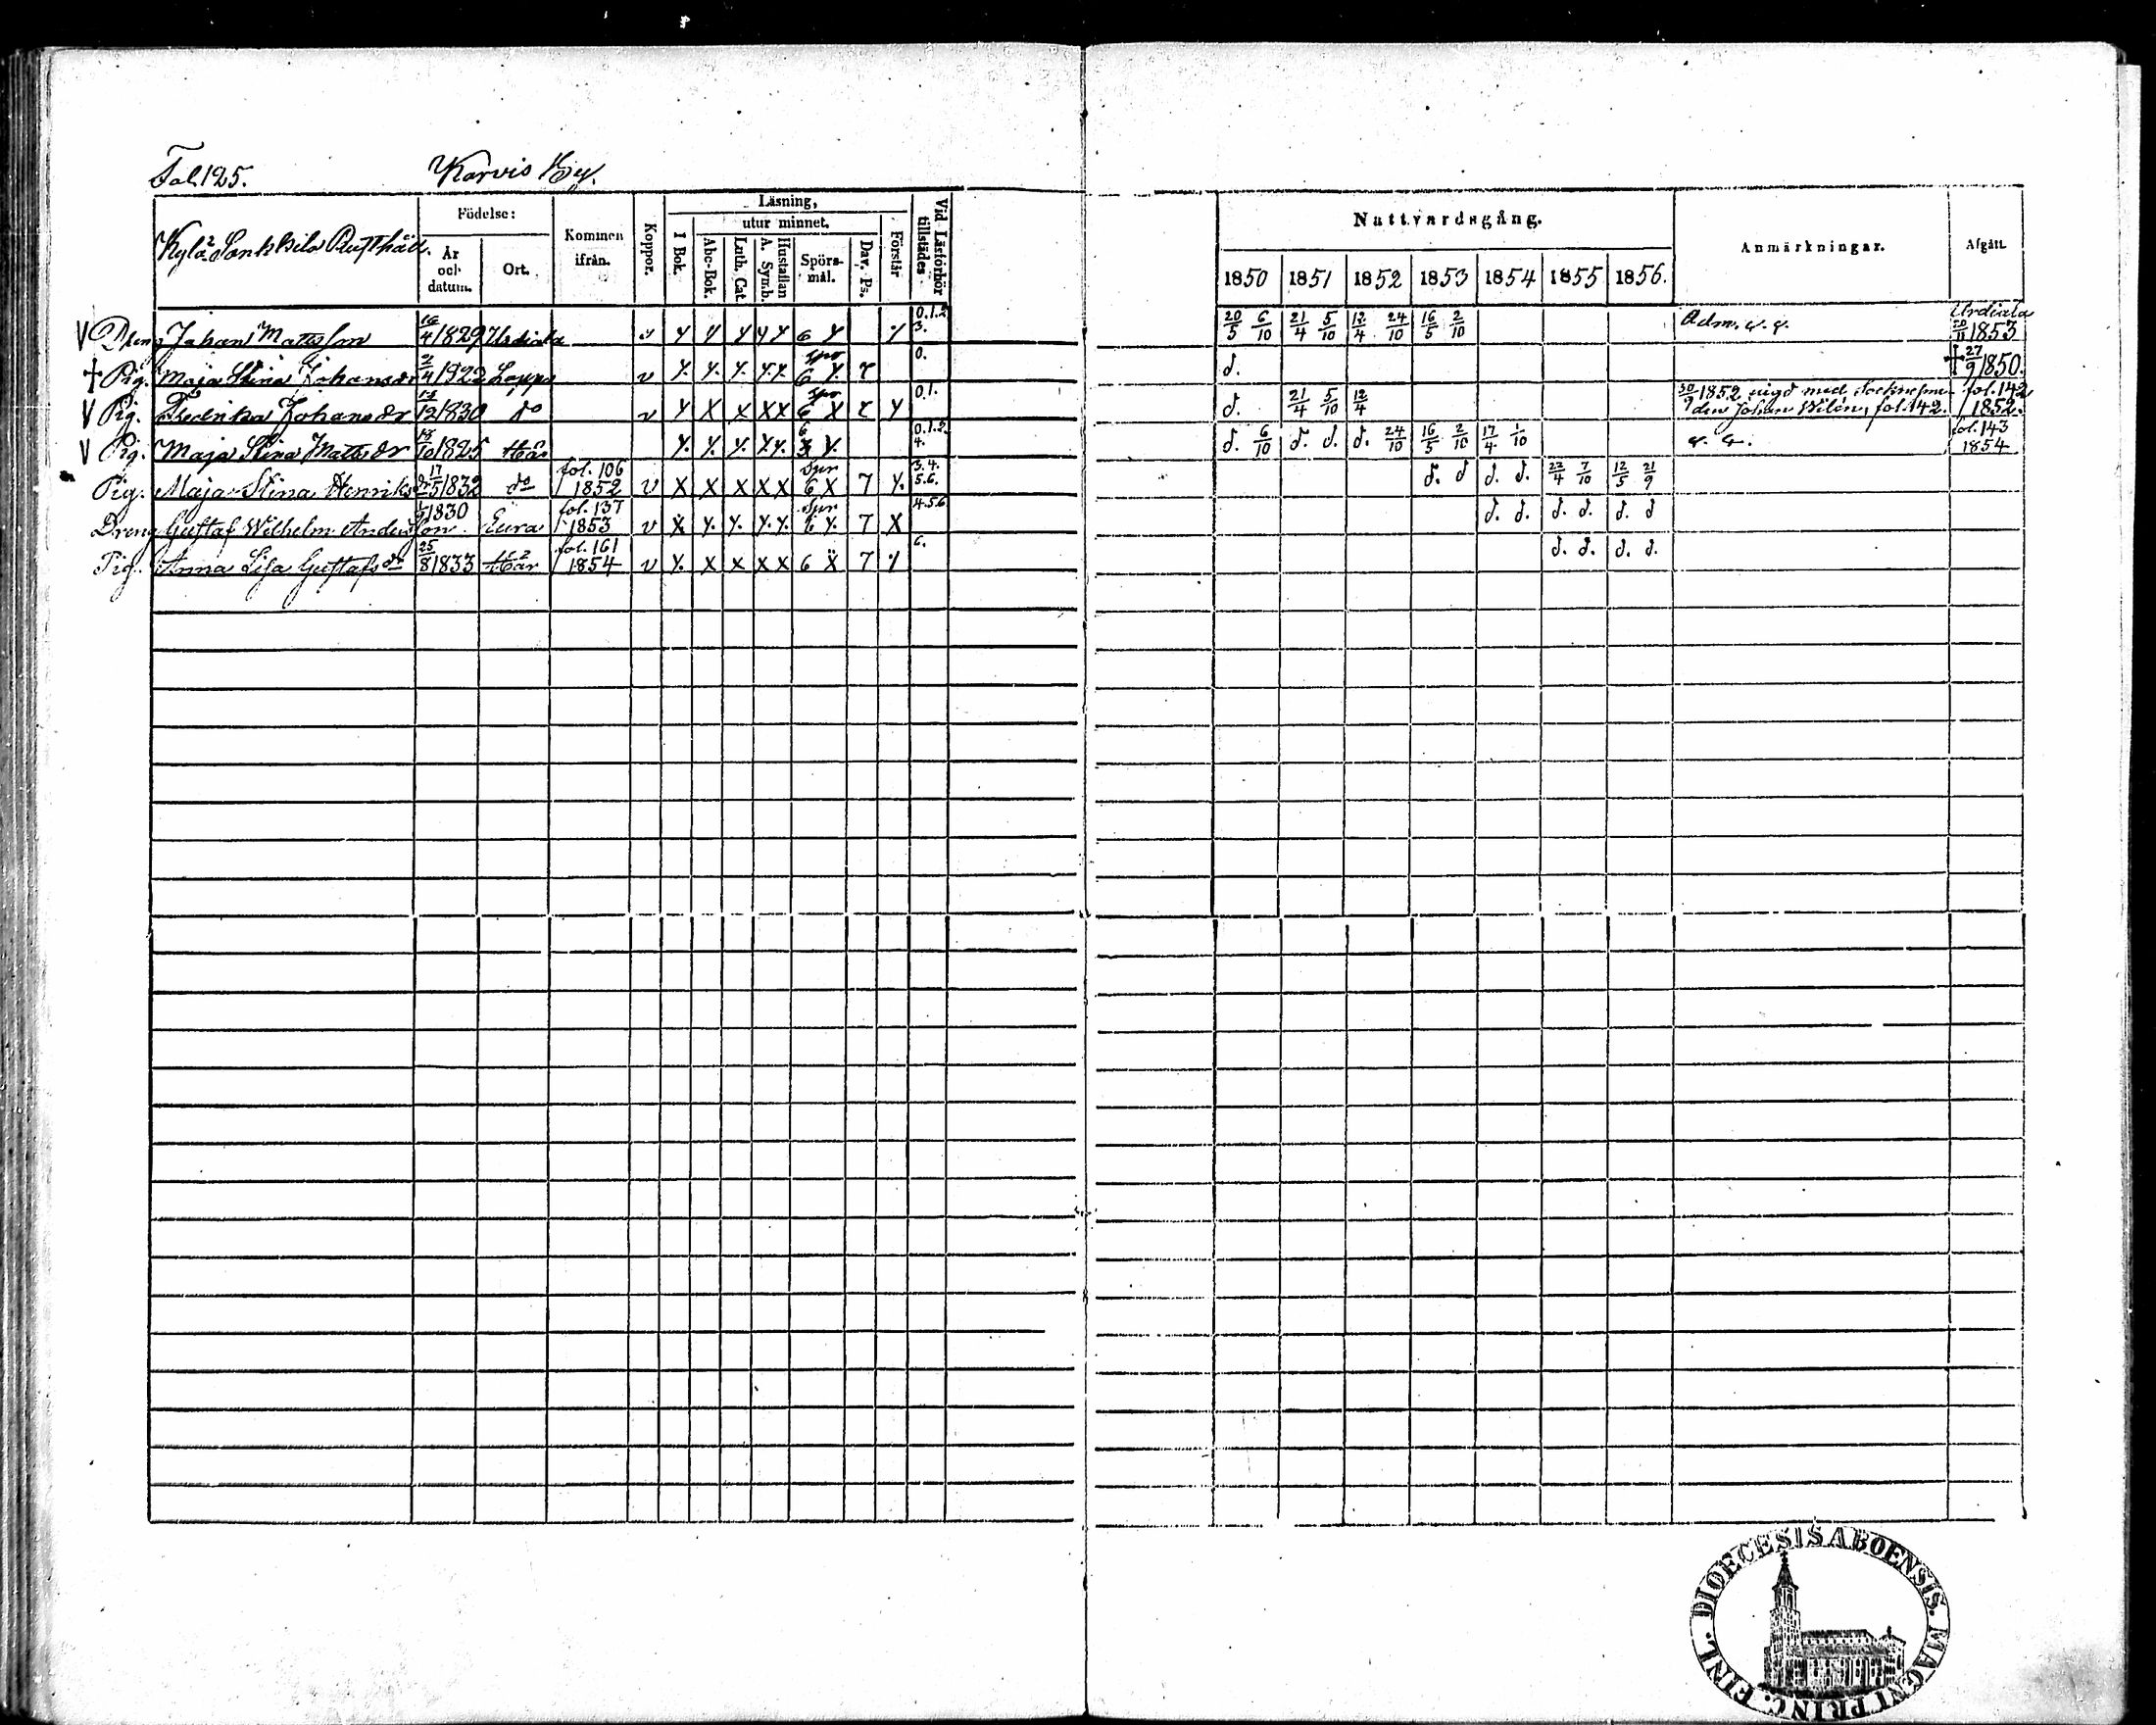 Fol. 125. Karvis By.
Kylä Sonkkila Rusthåll.
Födelse: År och datum. Ort. Kommen ifrån. Koppor. Läsning, I Bok. utur minnet. Abc-Bok. Luth. Cat. A. Symb. Hustaflan Spörsmål. Dav. Ps. Förstår Vid Läsförhör tillstädes
Nattvardsgång. 1850 1851 1852 1853 1854 1855 1856. Anmärkningar. Afgått.
V Dreng Johan Mattsson 16/4 1829 Urdiala v Y Y Y Y Y 6 Y 0.1.2. 3. 20/5 6/10 21/4 5/10 12/4 24/10 16/5 2/10 Adm. Urdiala 20/11 1853
† Pig. Maja Stina Johansdr 2/4 1822 Loppi v Y. Y. Y. Y. Y. 6 Y. 0. d. † 27/9 1850.
V Pig. Fredrika Johansdr 12 1830 do v Y X X X X 6 X Y 0.1. d. 21/4 5/10 12/4 30/9 1852 vigd med Sockne den Johan Wilén, fol. 142. fol. 142 1852.
V Pig. Maja Stina Mattsdr 10 1825 Här Y. Y. Y. Y. Y. 6 3 Y. 0.1.2. 4. d. 6/10 d. d. d. 24/10 16/5 2/10 17/4 1/10 fol. 143 1854
Pig. Maja Stina Henriksdr 17/5 1832 do fol. 106 1852 v X X X X X Spr 6 X 7 Y. 3.4. 5.6. d. d d. d. 22/4 7/10 12/5 21/9
Dreng Gustaf Wilhelm Andersson 1830 Eura fol. 137 1853 v X Y. Y. Y. Y. Spr 6 Y. 7 X 4.5.6 d. d. d. d. d. d
Pig. Anna Lisa Gustafsdr 25/8 1833 Här fol. 161 1854 v Y. X X X X 6 X 7 Y 6. d. d. d. d.
DIOECESIS ABOENSIS. MAGNI PRINC. FINL.